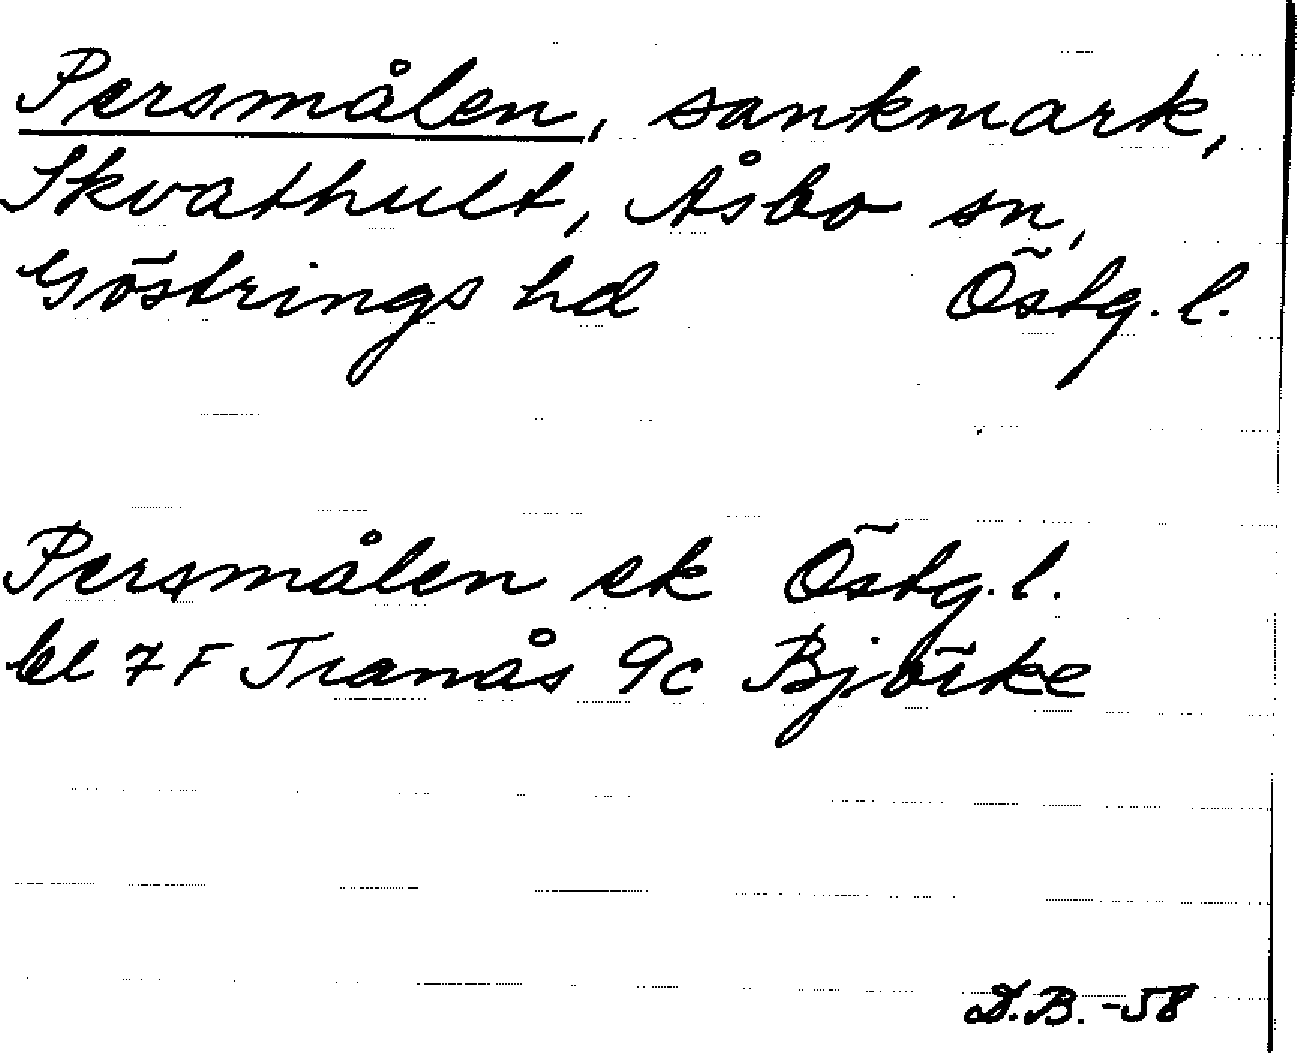 Persmålen, sankmark,
Skvathult, Åsbo sn,
Göstrings hd Östg. l.
Persmålen ek Östg. l.
bl 7 F Tranås 9c Björke
D.B. -58